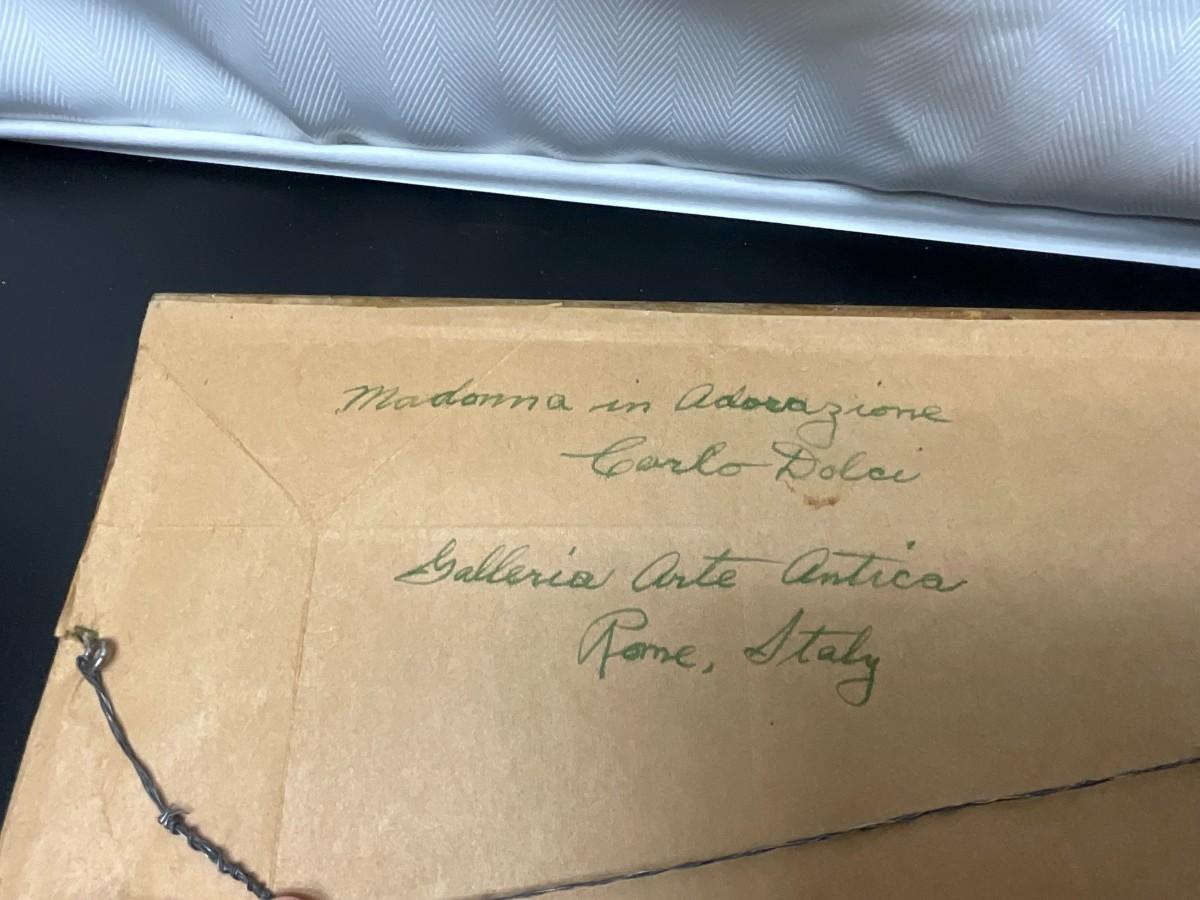 Madonna in Adorazione
Carlo Dolci
Galleria Arte Antica
Rome, Italy